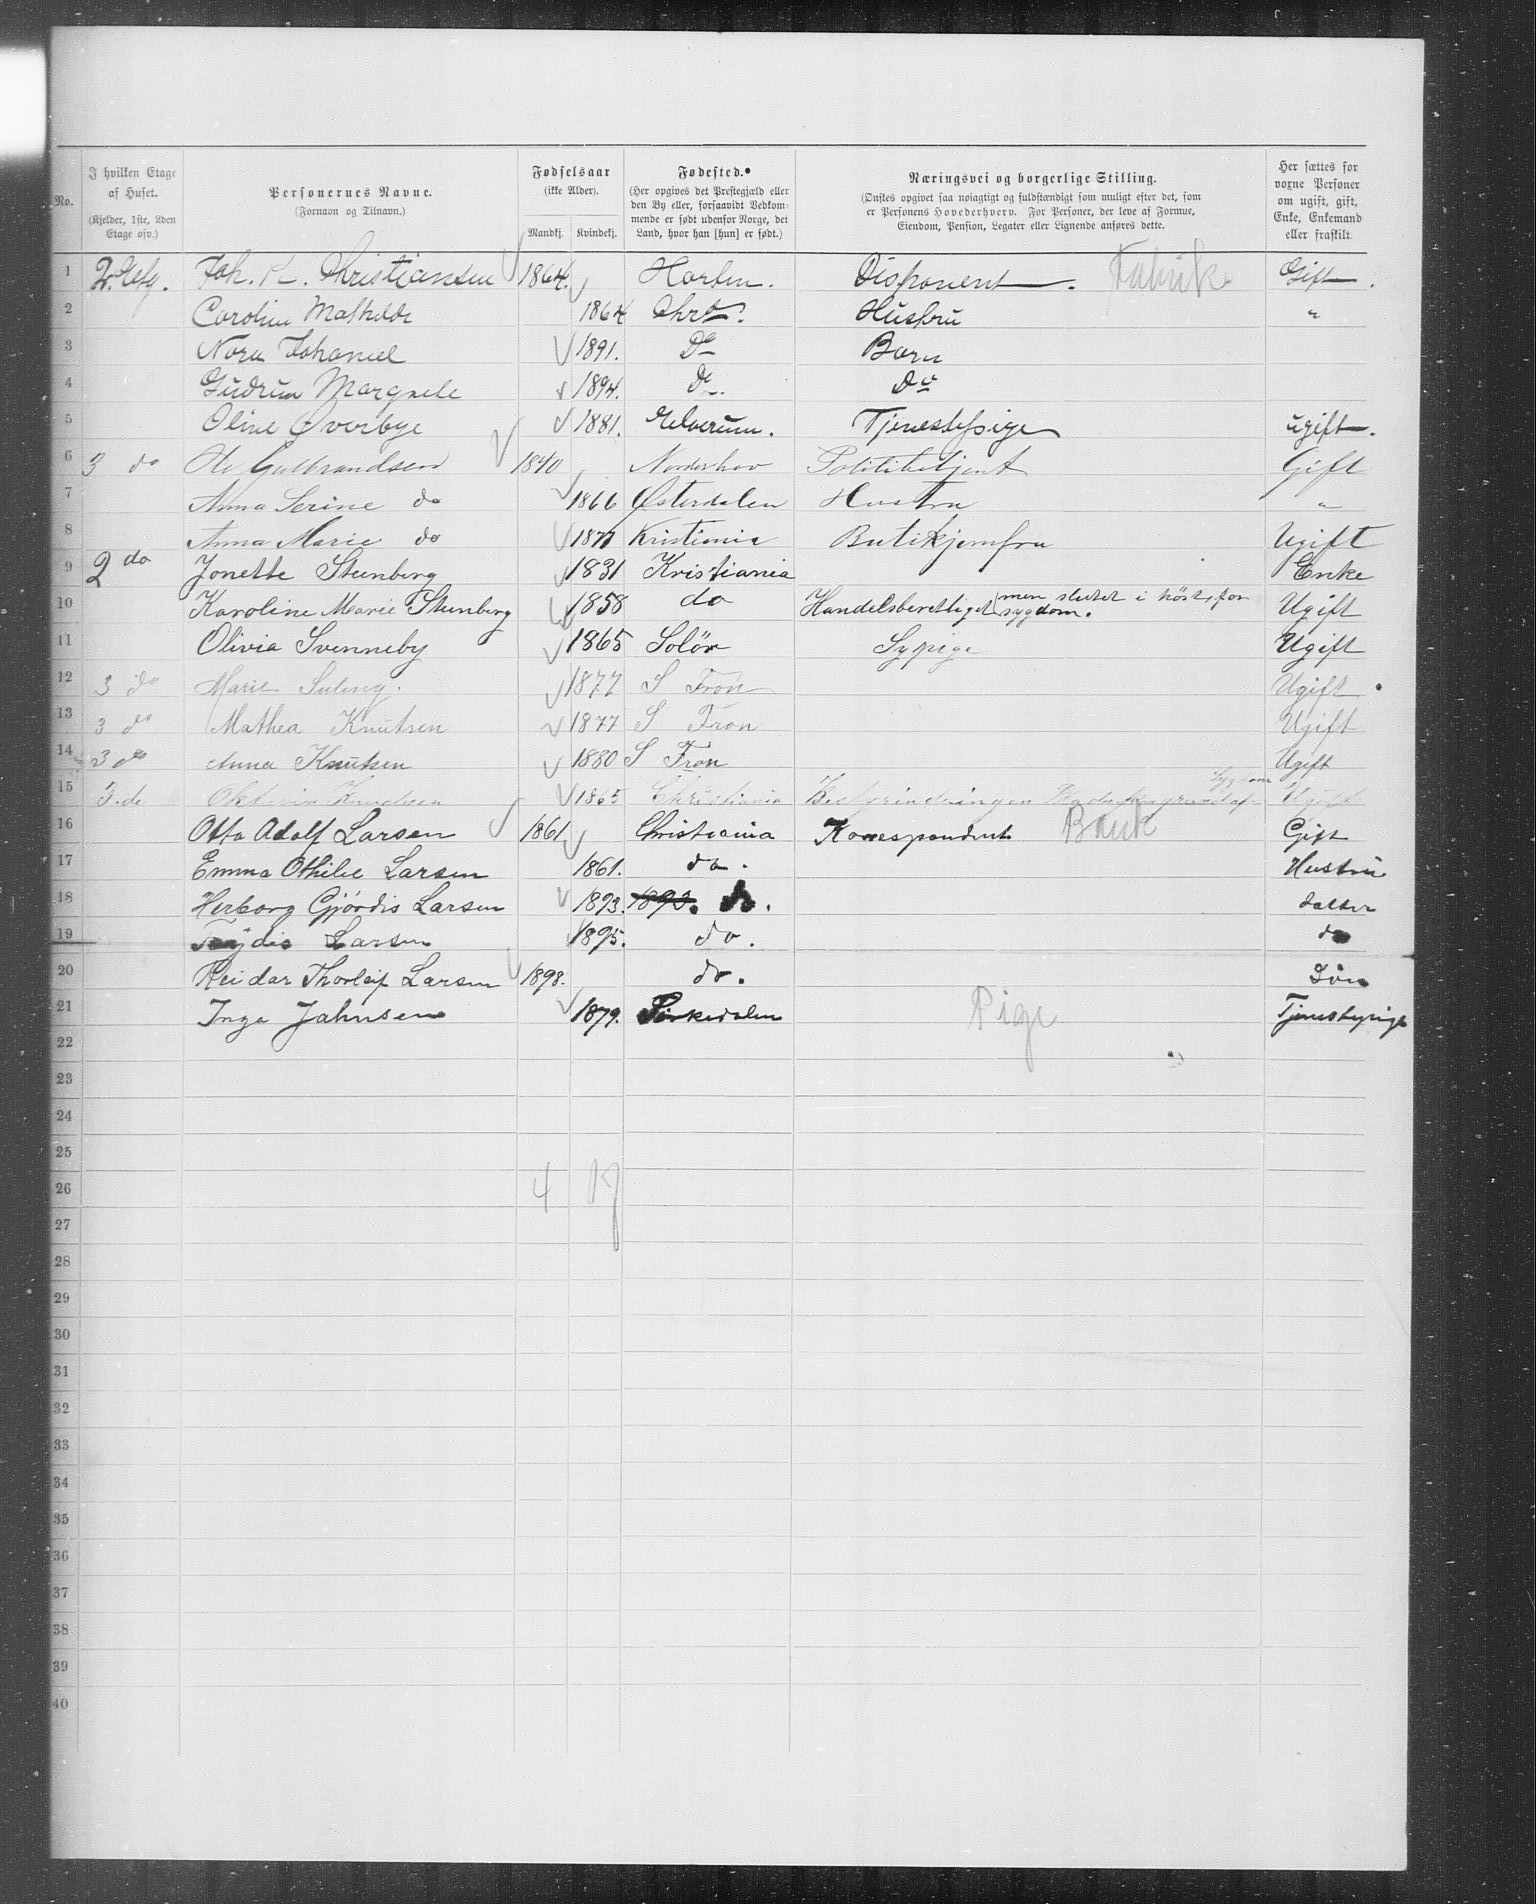 No. I hvilken Etage af Huset. (Kjelder, 1ste, 2den Etage osv.) Personernes Navne. (Fornavn og Tilnavn.) Fødselsaar (ikke Alder). Mandkj. Kvindekj. Fødested.* (Her opgives det Prestegjæld eller den By eller, forsaavidt Vedkommende er født udenfor Norge, det Land, hvor han [hun] er født.) Næringsvei og borgerlige Stilling. (Ønskes opgivet saa nøiagtigt og fuldstændigt som muligt efter det, som er Personens Hovederhverv. For Personer, der leve af Formue, Eiendom, Pension, Legater eller Lignende anføres dette. Her sættes for voxne Personer om ugift, gift, Enke, Enkemand eller fraskilt
1 2. Etg. Joh. K. Christiansen 1864. Horten. Disponent. Fabrik Gift.
2 Caroline Mathilde 1864 Chra. Hustru "
3 Nora Johanne 1891. Do Barn
4 Gudrun Margrete 1894. Do Do
5 Oline Overbye 1881. Elverum. Tjenestepige ugift.
6 3 do Ole Gulbrandsen 1840 Norderhov Politibetjent Gift
7 Anna Serine do 1866 Østerdalen Hustru "
8 Anna Marie do 1877 Kristiania Butikjomfru Ugift
9 2 do Jonette Steenberg 1831 Kristiania Enke
10 Karoline Marie Steenberg 1858 do Handelsberettiget (men sluttet i höst, for sygdom. Ugift
11 Olivia Svenneby 1865 Solör Sypige Ugift
12 3 do Marie 1877 S Fron Ugift
13 3 do Mathea Knutsen 1877 S Fron Ugift
14 3 do Anna Knutsen 1880 S Fron Ugift
15 3. do Knudsen 1865 Christiania Sygdom Ugift
16 Otto Adolf Larsen 1861 Christiania Korrespondent Bank Gift
17 Emma Othilie Larsen 1861. do. Hustru
18 Herborg Gjördis Larsen 1893. 1893. do. datter
19 Larsen 1895. do. do
20 Reidar Thorleif Larsen 1898. do. Sön
21 Inga Jahnsen 1879. Sörkedalen Pige Tjenestepige
22
23
24
25
26 4 17
27
28
29
30
31
32
33
34
35
36
37
38
39
40